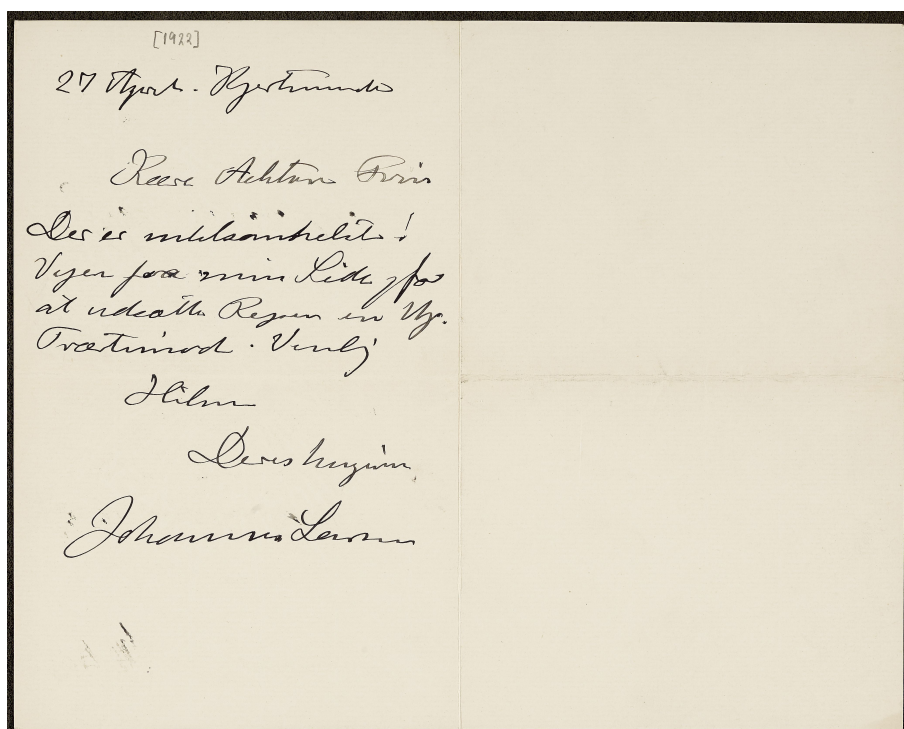 [1922]
27 April. Kjerteminde
Kære Achton Friis
Der er intet
Vejen fra min Side for
at udsætte Rejsen en Uge.
Tværtimod. Venlig
Hilsen
Deres hengivne
Johannes Larsen